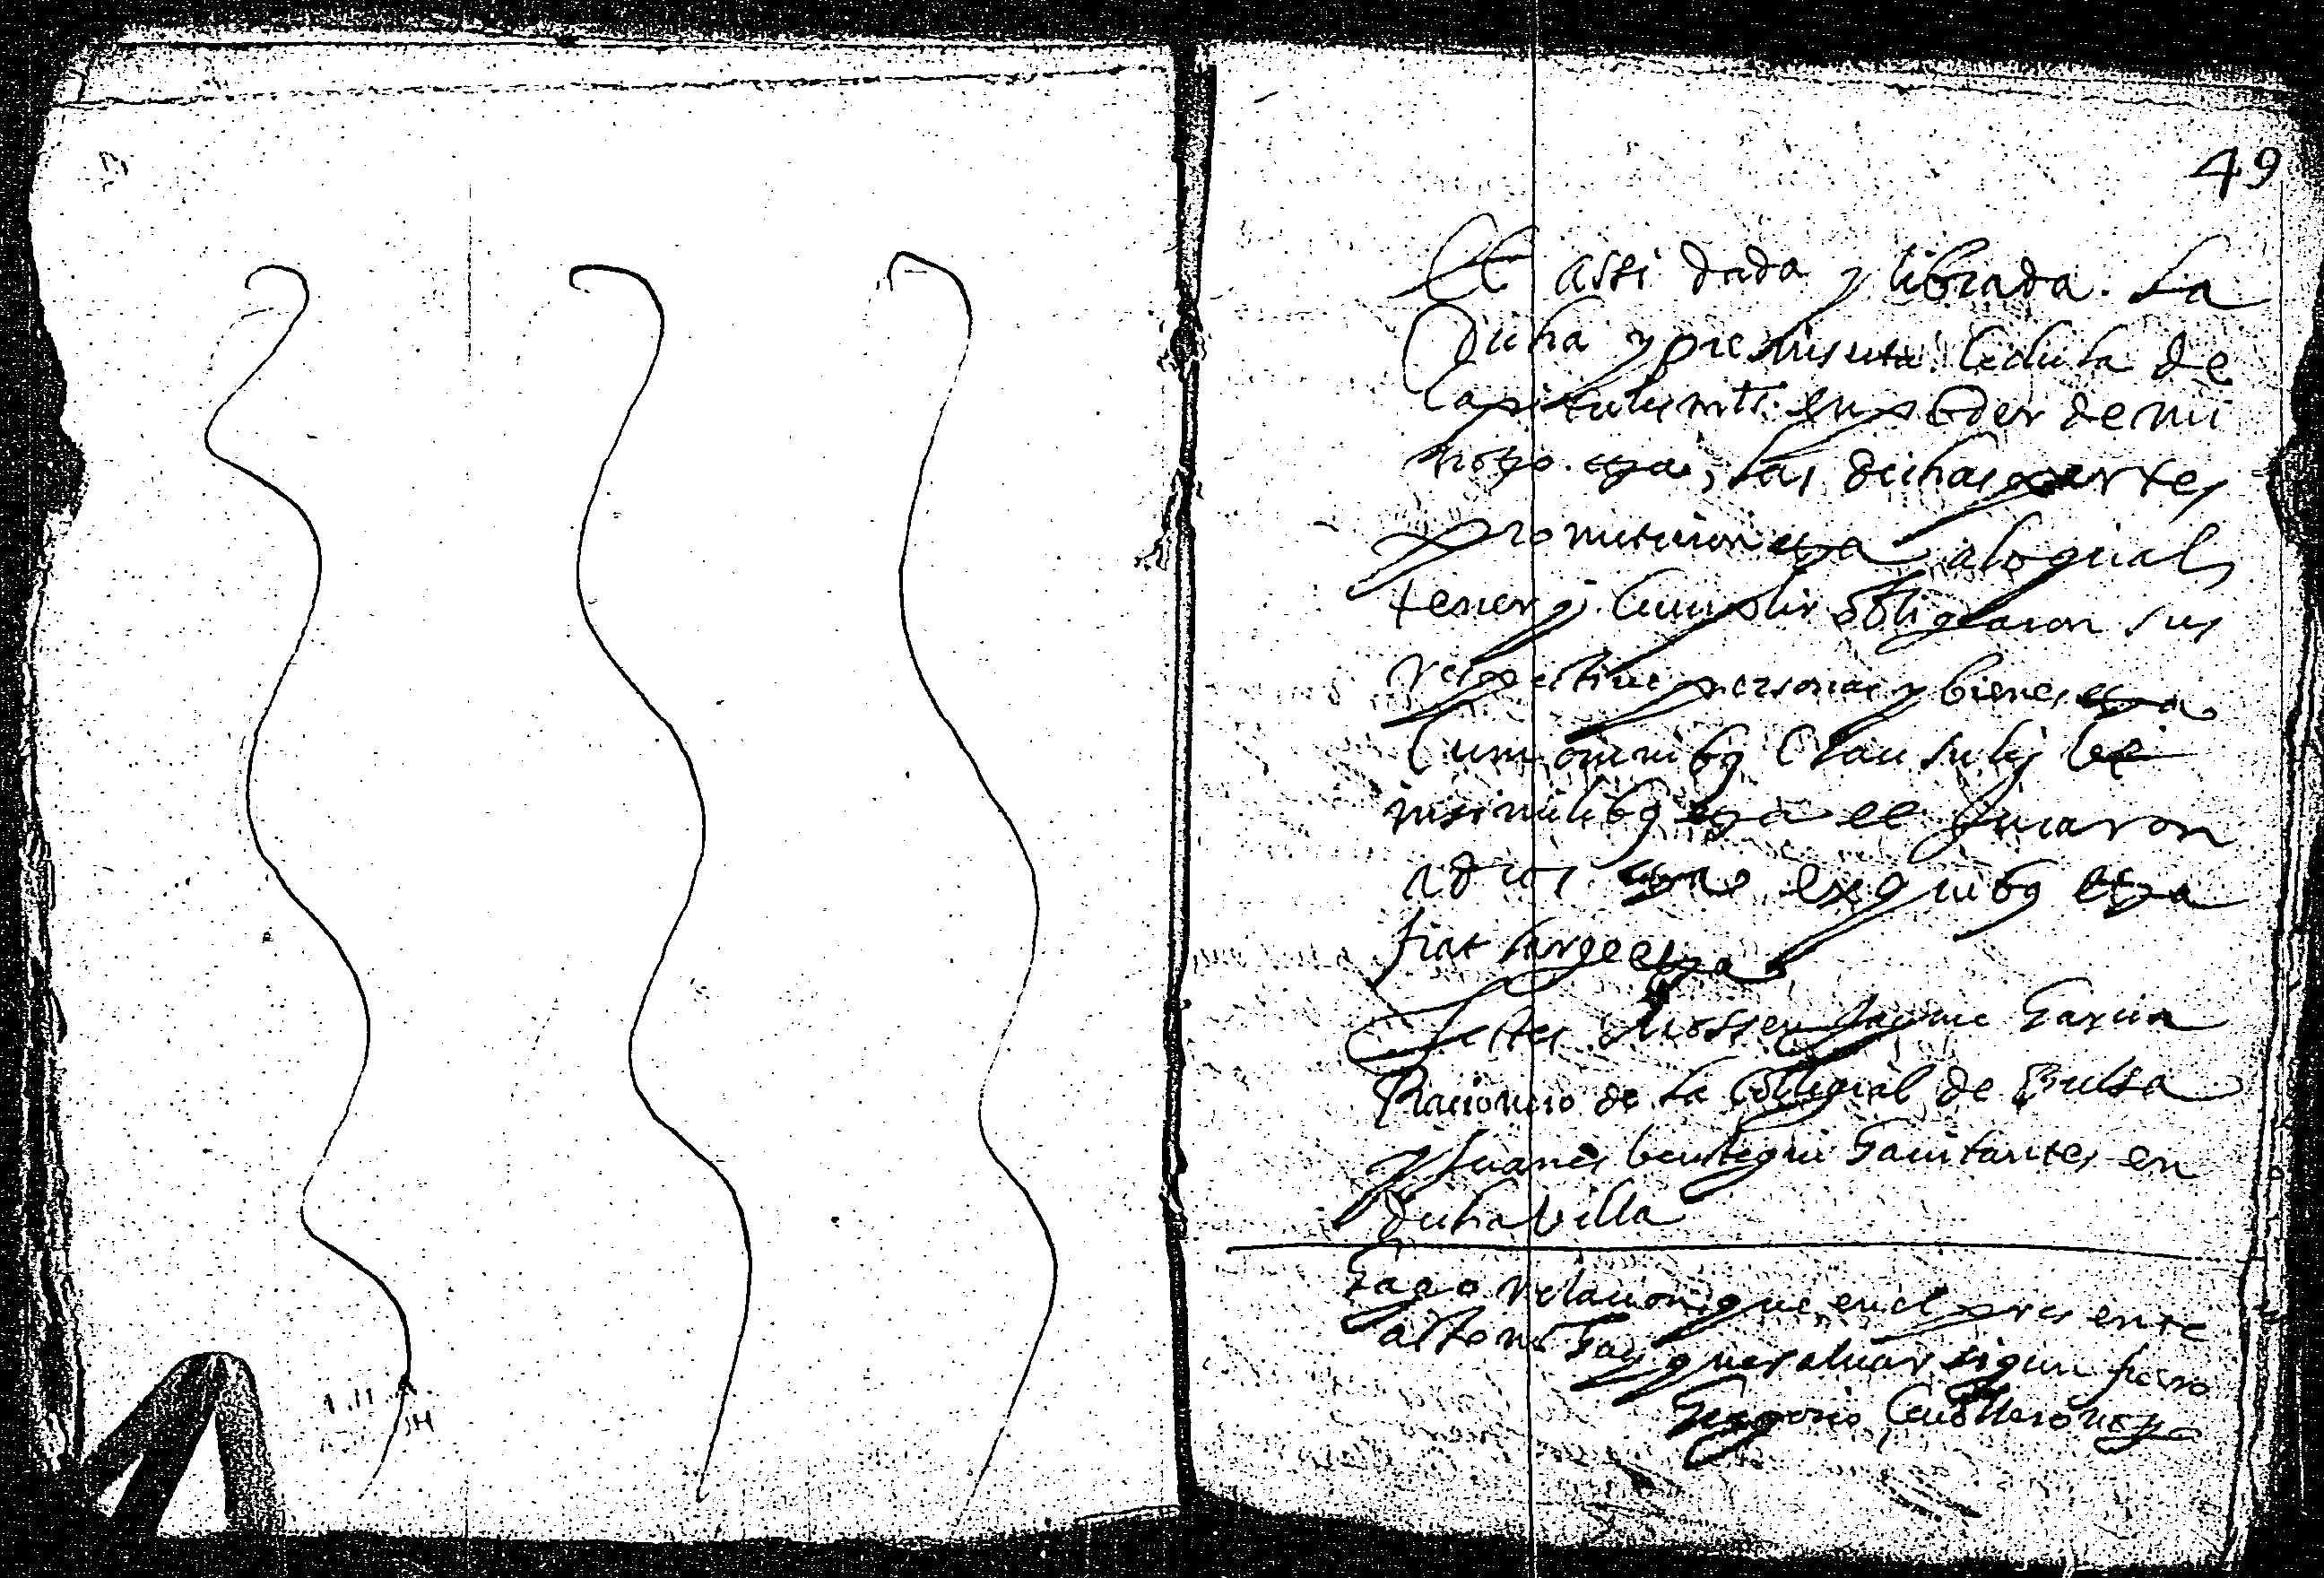 49
Et assi dada y librada la
dicha y preinserta cedula de
Capitulus en poder de mi
noto. etza, las dichas partes
prometieron etza a lo qual
tener y Cumplir obligaron sus
respective personas y bienes etza
Cum omnibus Clausulis
insimilibus etza et juraron
a dios etza ex quibus etza
fiat large etza
Testes Mossen Jayme Garcia
Racionero de la Collegial de
y Juanes habitantes en
dicha Villa
Hago relacion que en el presente
acto no hay que salvar sigun fuero
Gregorio